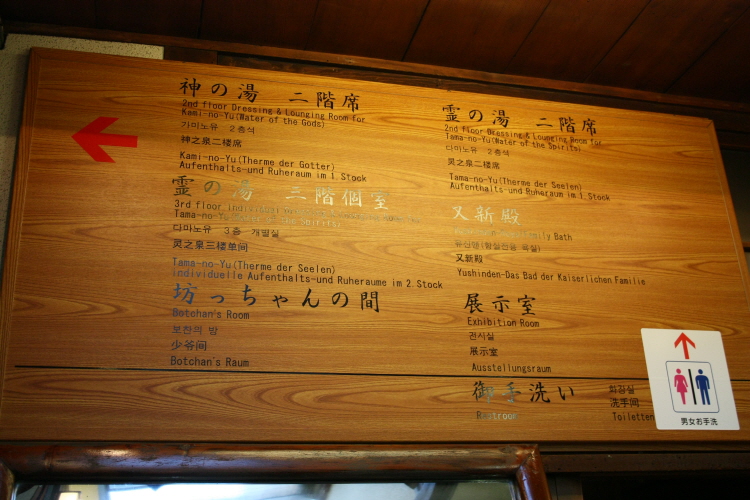 神の湯 二階席
2nd floor Dressing & Lounging Room for
Kami-no-Yu(Water of the Gods)
가미노유 2층석
神之泉二楼席
Kami-no-Yu(Therme der Gotter)
Aufenthalts-und Ruheraum im 1. Stock
霊の湯 三階個室
3rd floor individual
Tama-no-Yu(Water of the Spirits)
다마노유 3층 개별실
灵之泉三楼单间
Tama-no-Yu(Therme der Seelen)
individuelle Aufenthalts-und Ruheraume im 2. Stock
坊っちゃんの間
Botchan's Room
보찬의 방
少爷间
Botchan's Raum
霊の湯 二階席
2nd floor Dressing & Lounging Room for
Tama-no-Yu(Water of the Spirits)
다마노유 2층석
灵之泉二楼席
Tama-no-Yu(Therme der Seelen)
Aufenthalts-und Ruheraum im 1. Stock
又新殿
Family Bath
又新殿
Yushinden-Das Bad der Kaiserlichen Familie
展示室
Exhibition Room
전시실
展示室
Ausstellungsraum
御手洗い
Restroom
화장실
洗手间
Toiletten
男女お手洗